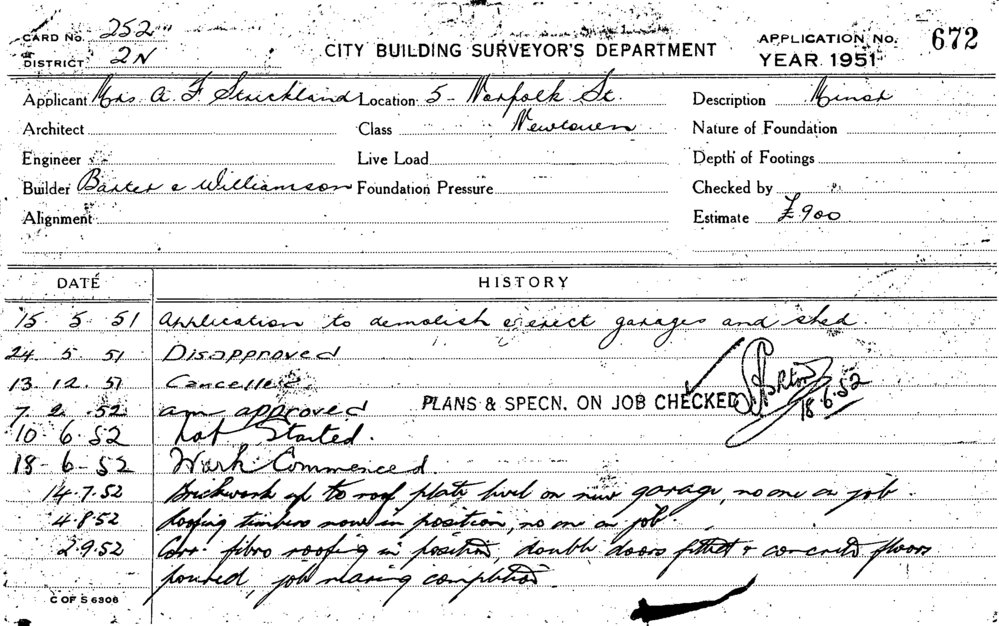 CARD No. 252
OF
DISTRICT 2N
CITY BUILDING SURVEYOR'S DEPARTMENT
APPLICATION No. 672
YEAR 1951
Applicant Mrs. A. F Strickland Location 5 - Norfolk St. Description Minor
Architect Class Newtown Nature of Foundation
Engineer Live Load Depth of Footings
Builder Baxter & Williamson Foundation Pressure Checked by
Alignment Estimate £900
DATE HISTORY
15. 5. 51 Application to demolish & erect garages and shed.
24. 5. 51 Disapproved
13. 12. 51 Cancelled
7. 2. 52 am approved PLANS & SPECN. ON JOB CHECKED 18.6.52
10 - 6. 52 Not Started.
18 - 6 - 52 Work Commenced.
14.7.52 Brickwork up to roof plate level on new garage, no one on job.
4.8.52 Roofing timbers now in position, no one on job.
2.9.52 Corr. fibro roofing in position, double doors fitted & concrete floors
poured, job nearing completion.
C OF S 6306